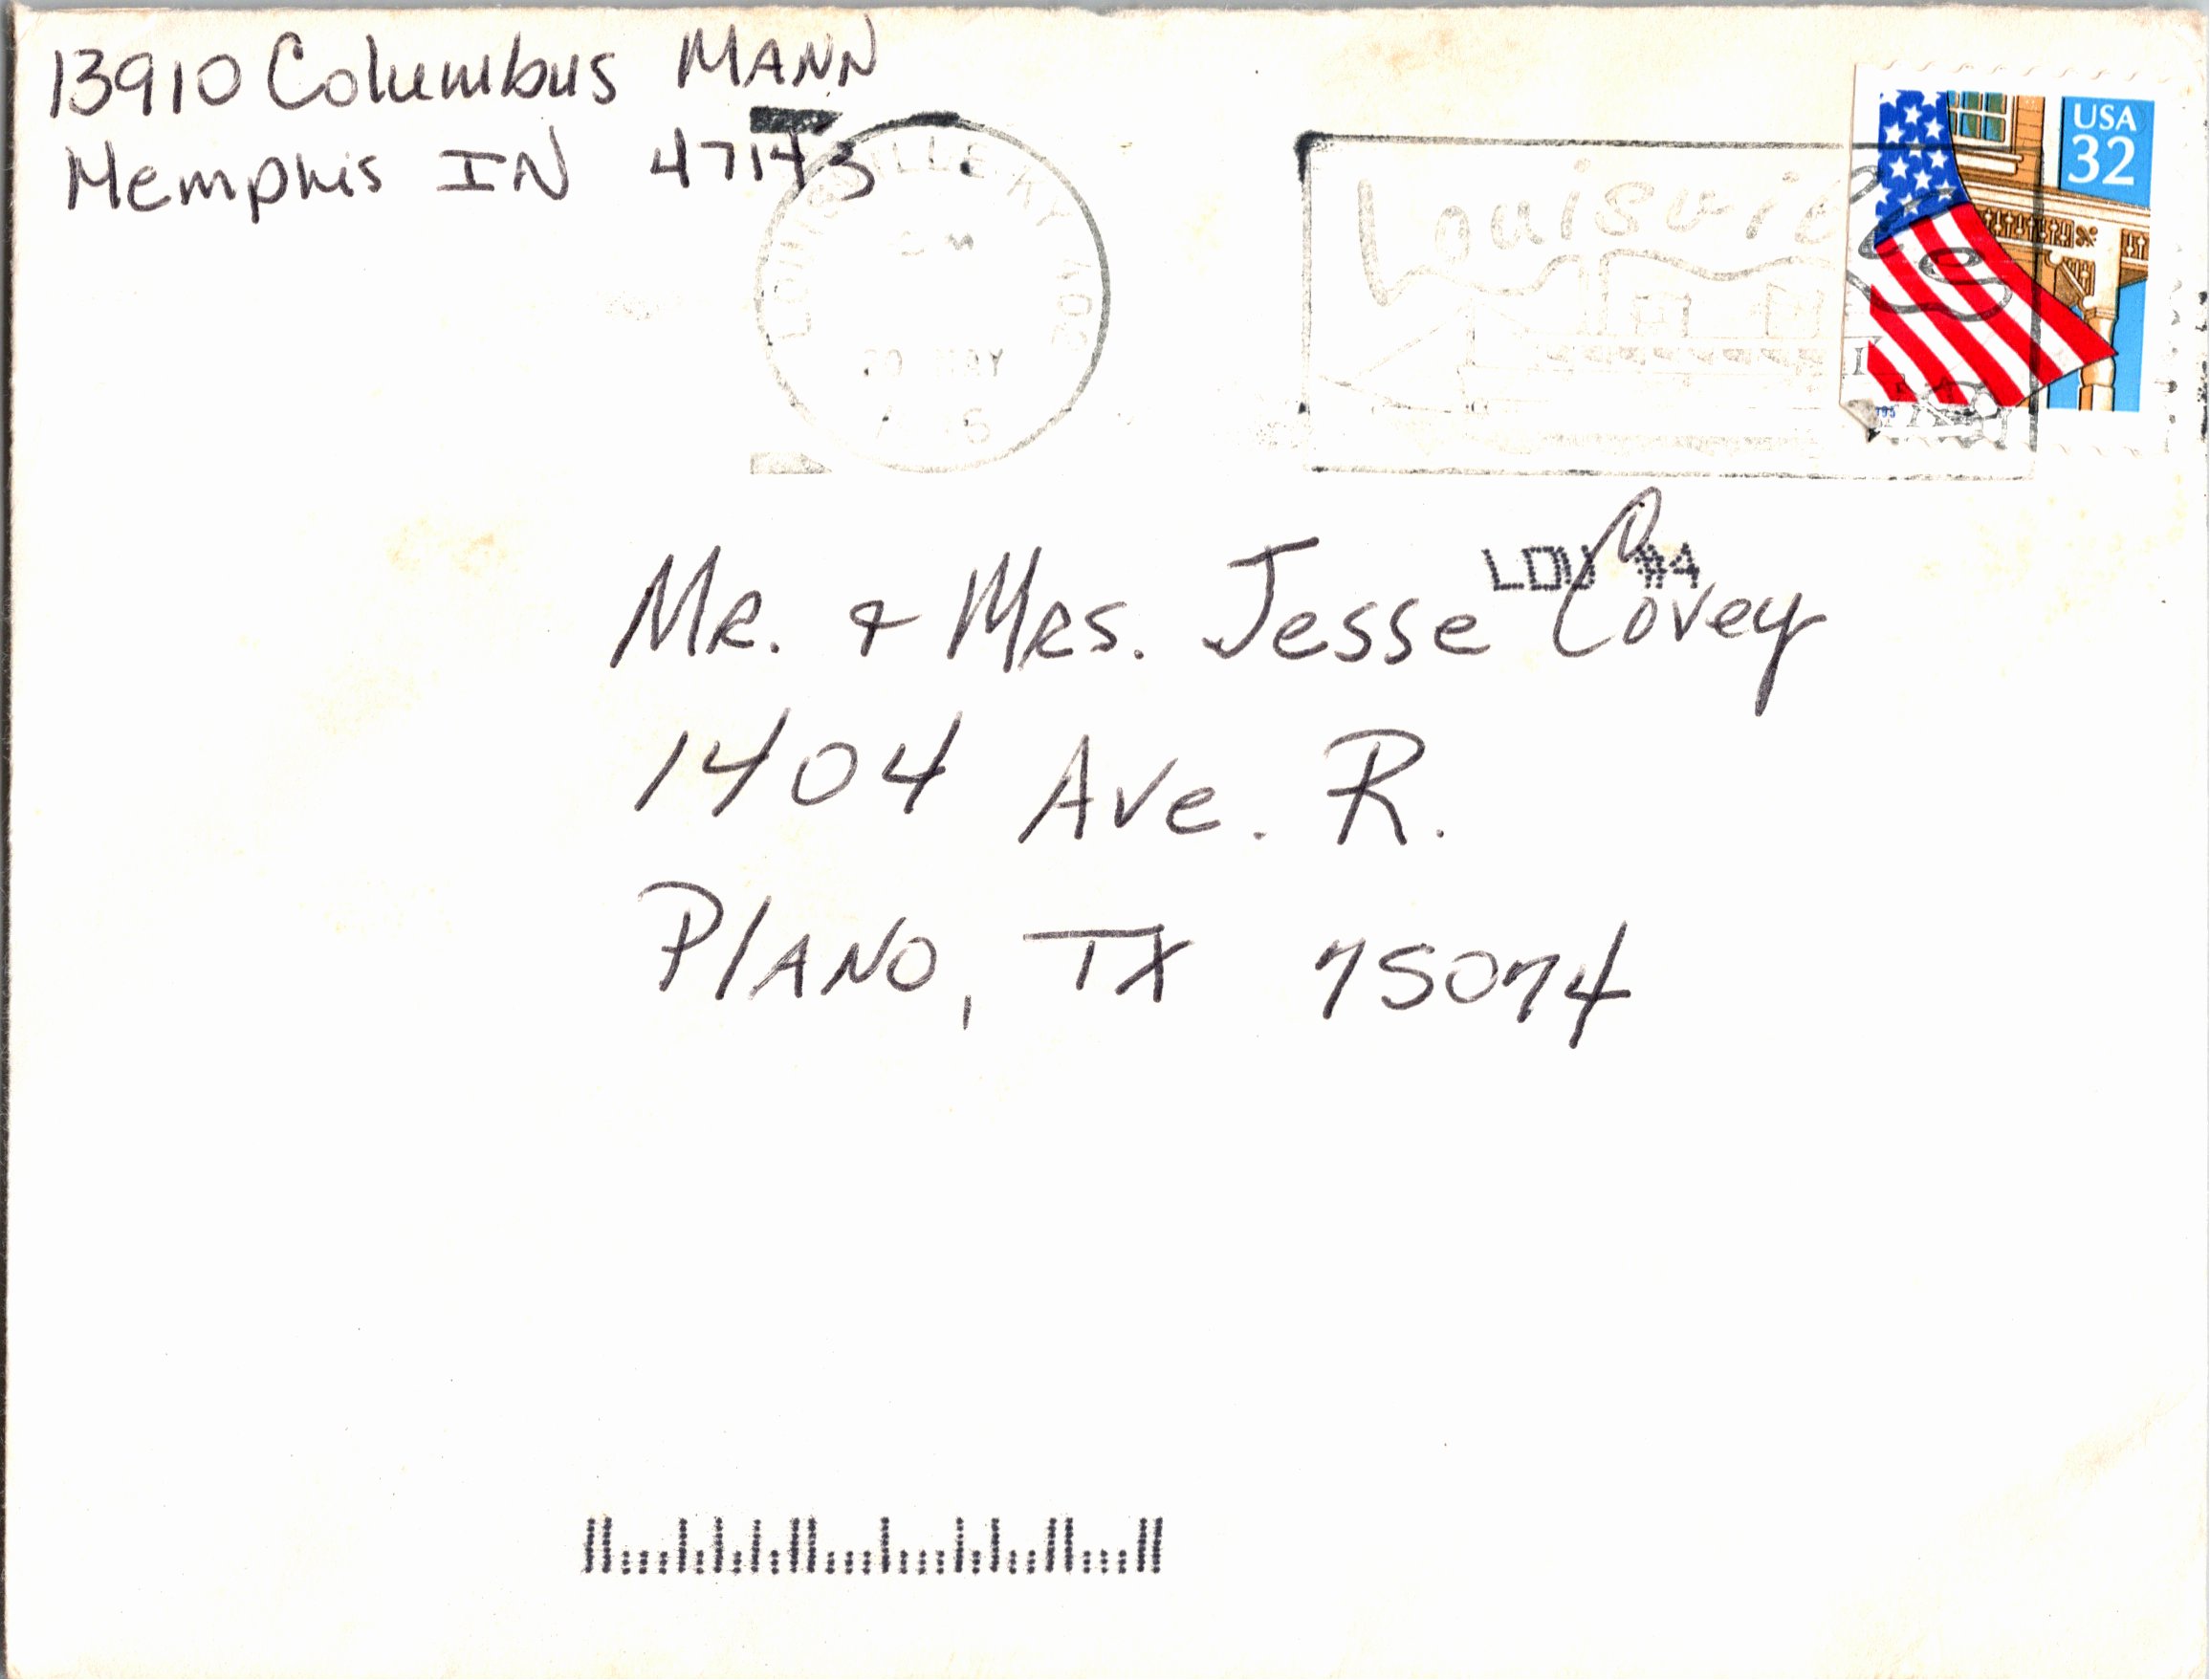 13910 Columbus MANN
Memphis IN 47143
LOUISVILLE KY 402
PM
MAY
Louisville
USA
32
LOU #4
Mr. & Mrs. Jesse Covey
1404 Ave. R.
Plano, TX 75074